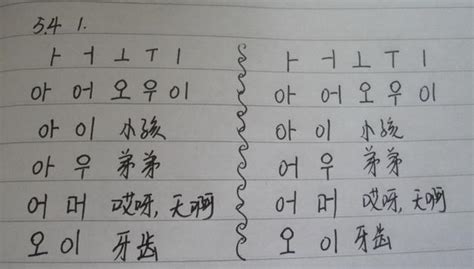 5.4 1.
ㅏ ㅓ ㅗ ㅜ ㅣ
아 어 오 우 이
아 이 小孩
아 우 弟弟
어 머 哎呀,天啊
오 이 牙齿
ㅏ ㅓ ㅗ ㅜ ㅣ
아 어 오 우 이
아 이 小孩
어 우 弟弟
어 머 哎呀,天啊
오 이 牙齿